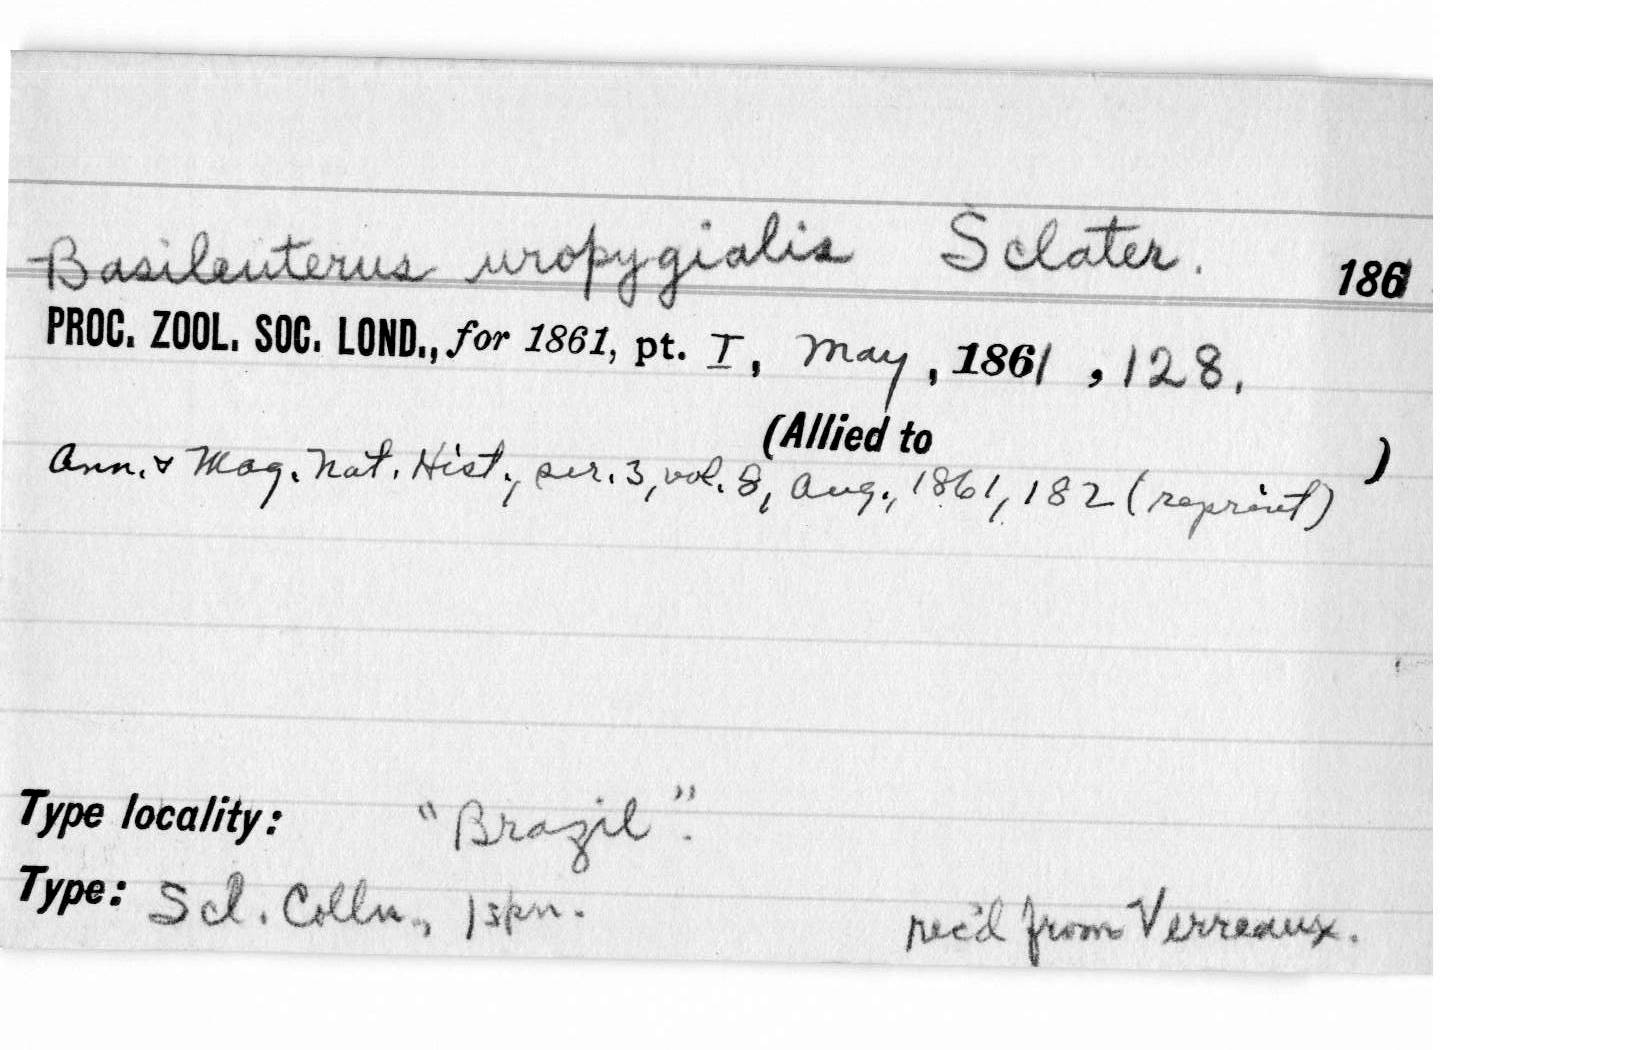 Basileuterus uropygialis Sclater. 1861
PROC. ZOOL. SOC. LOND., for 1861, pt. I, May, 1861, 128.
(Allied to )
Ann. & Mag. Nat. Hist., ser. 3, vol. 8, Aug., 1861, 182 (reprint)
Type locality: "Brazil".
Type: Scl. Colln., 1 spn. rec'd from Verreaux.